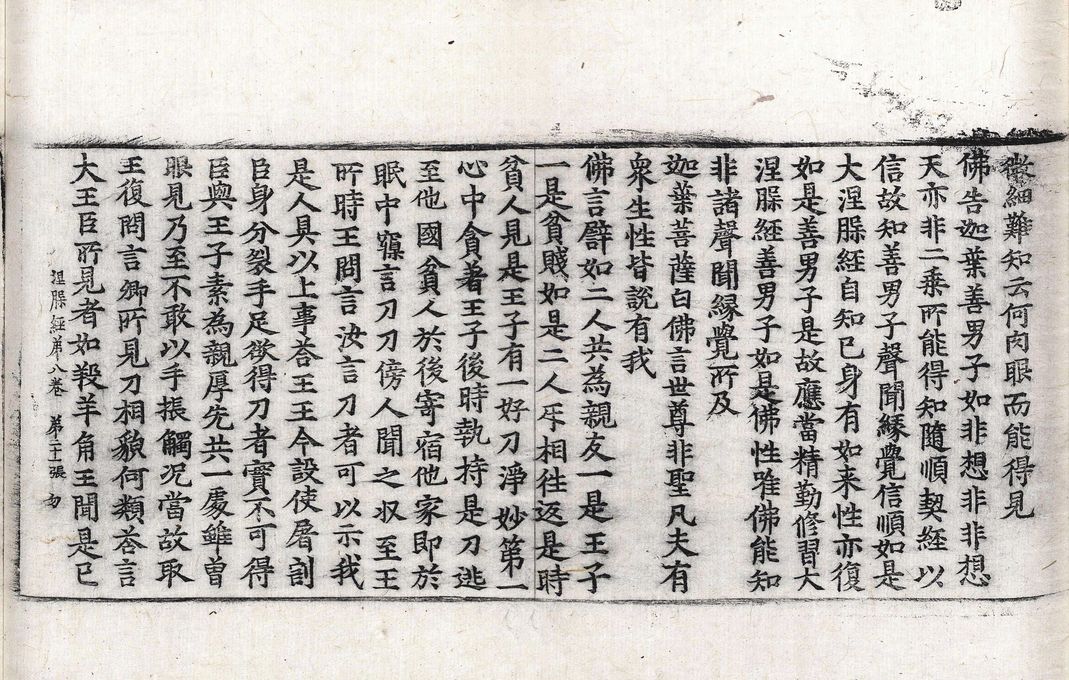 微細難知云何肉眼而能得見
佛告迦葉善男子如非想非非想
天亦非二乗所能得知隨順契經以
信故知善男子聲聞縁覺信順如是
大涅槃經自知己身有如来性亦復
如是善男子是故應當精勤修習大
涅槃經善男子如是佛性唯佛能知
非諸聲聞縁覺所及
迦葉菩薩白佛言世尊非聖凡夫有
衆生性皆說有我
佛言譬如二人共為親友一是王子
一是貧賤如是二人互相往返是時
貧人見是王子有一好刀淨妙第一
心中貪著王子後時執持是刀逃
至他國貧人於後寄宿他家即於
眠中寱言刀刀傍人聞之收至王
所時王問言汝言刀者可以示我
是人具以上事荅王王今設使屠割
臣身分裂手足欲得刀者實不可得
臣與王子素為親厚先共一處雖曾
眼見乃至不敢以手掁觸况當故取
王復問言卿所見刀相貌何類荅言
大王臣所見者如羖羊角王聞是已
涅槃經第八卷 第二十張 勿